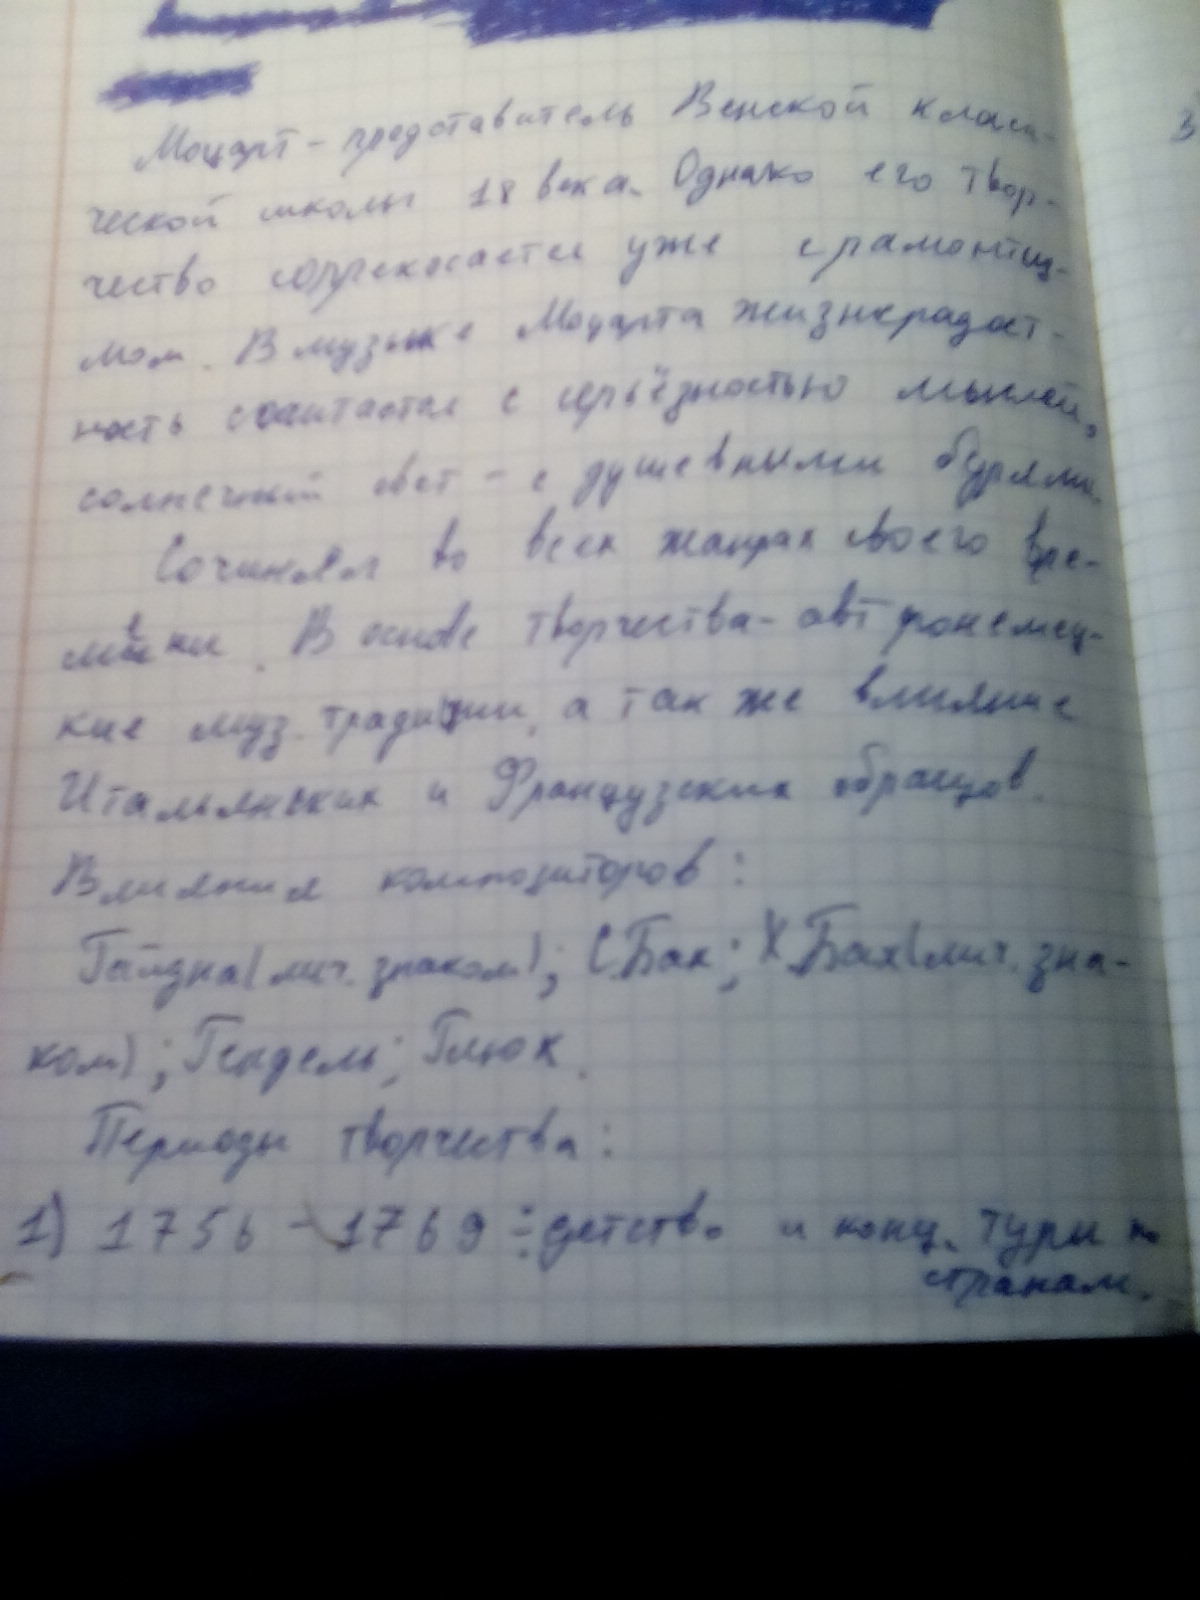 Моцарт - представитель Венской класси-
ческой школы 18 века. Однако его твор-
чество соприкасается уже с рамонтиц-
мом. В музыке Моцарта жизнерадост-
ность сочитается с серьёзностью мыслей,
солнечный свет - с душевными бурями.
Сочинял во всех жанрах своего вре-
мени. В основе творчества - австронемец-
кие муз. традиции, а так же влияние
Итальянских и Французских образцов.
Влияния композиторов:
Гайдна (лич. знаком); С Бах; Х Бах (лич. зна-
ком); Гендель; Глюк.
Периоды творчества:
1) 1756 - 1769: детство и конц. туры по
странам.